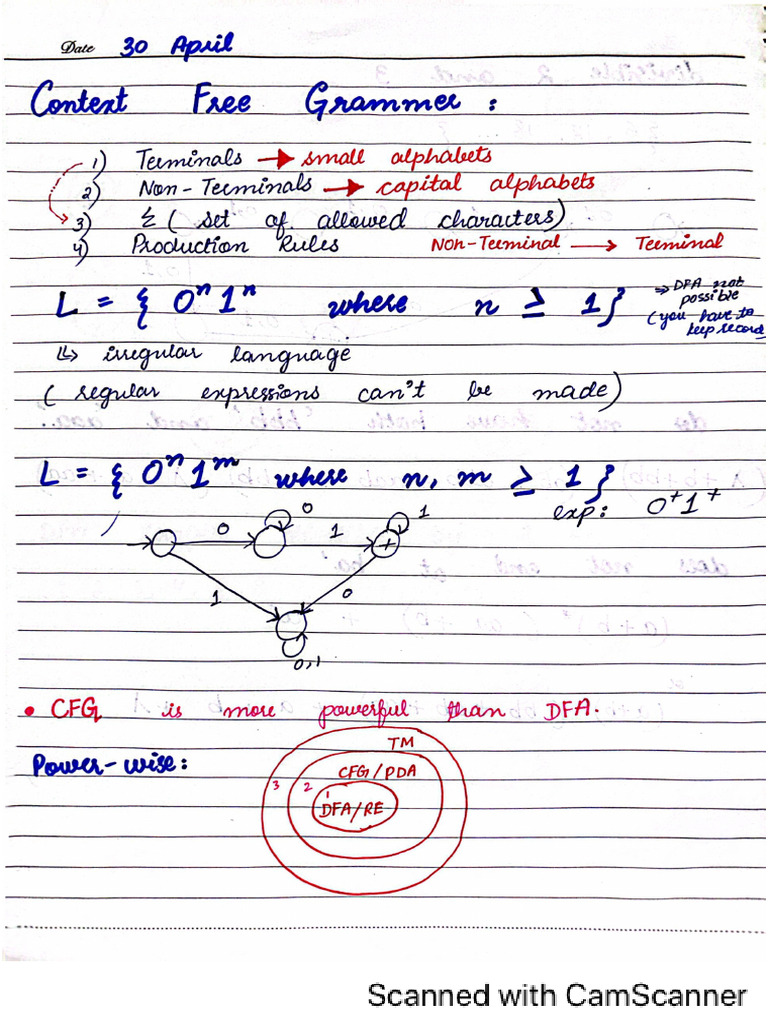 Date 30 April
Context Free Grammer :
1) Terminals → small alphabets
2) Non-Terminals → capital alphabets
3) Σ ( set of allowed characters)
4) Production Rules Non-Terminal → Terminal
L = { 0ⁿ 1ⁿ where n ≥ 1}
⇒ DFA not possible
(you have to keep record
↳ irregular language
( regular expressions can't be made)
L = { 0ⁿ 1ᵐ where n, m ≥ 1 }
exp: 0⁺1⁺
0 0 1 1
+
1 0
0,1
• CFG is more powerful than DFA.
Power-wise:
TM
CFG/PDA
3 2 1
DFA/RE
Scanned with CamScanner